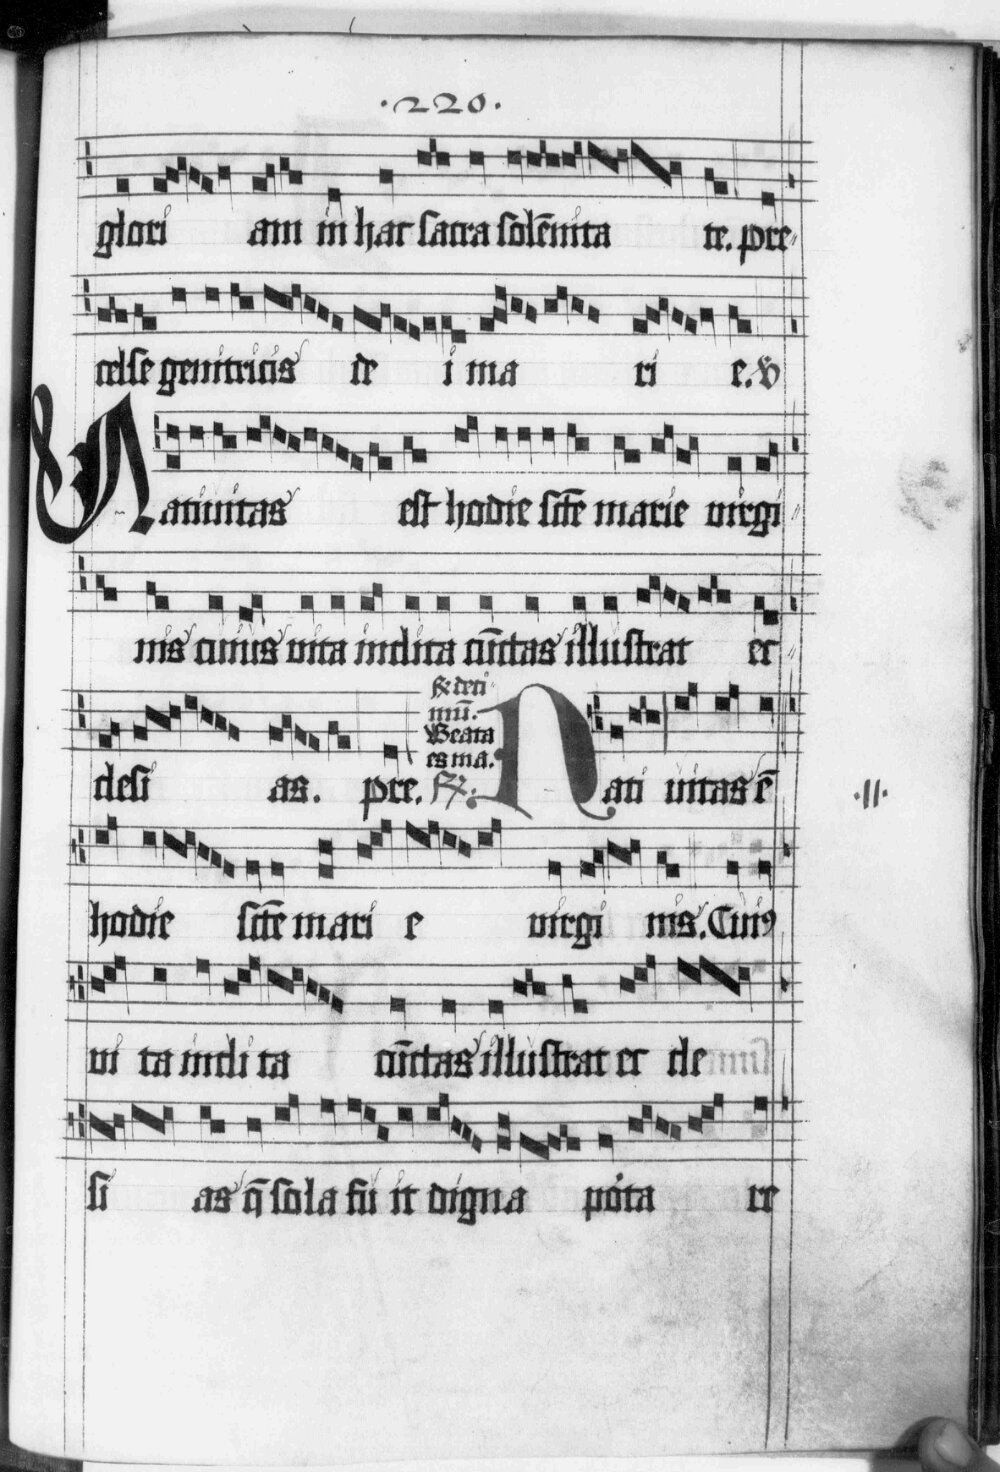 ·220·
glori am in hac sacra solēnita te. pre
celse genitricis de i ma ri e. v
Natiuitas est hodie scte marie virgi
nis cuius vita inclita cūctas illustrat ec
clesi as. pre.
Beata
es ma.
Nati uitas ē
·II·
hodie scte mari e virgi nis. Cui9
vi ta incli ta cūctas illustrat ec cle
si as q̄ sola fu it digna pota re